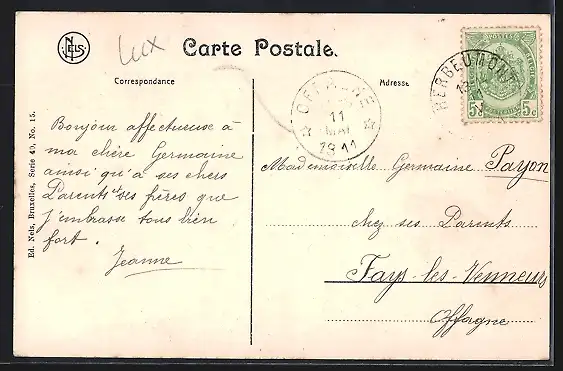 NELS
lux
Carte Postale.
Correspondance
Adresse
Ed. Nels, Bruxelles, Serie 40, No. 15.
Bonjour affectueuse à
ma chère Germaine
ainsi qu'à ses chers
Parents et ses frères que
j'embrasse tous bien
fort.
Jeanne
OFFAGNE
11
MAI
1911
HERBEUMONT
POSTES
5c 5c
Mademoiselle Germaine Payon
chez ses Parents
Fays-les-Venneurs
Offagne